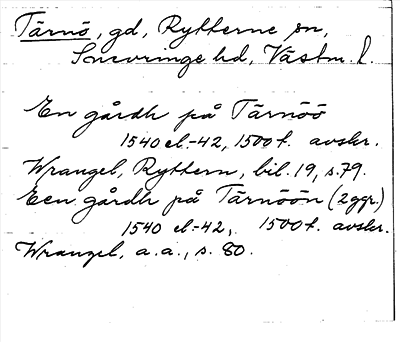 Tärnö, gd, Rytterne sn,
Snevringe hd, Västm. l.
En gårdh på Tärnöö
1540 el.-42, 1500 t. avskr.
Wrangel, Ryttern, bil. 19, s. 79.
Een gårdh på Tärnöön (2 ggr.)
1540 el.-42, 1500 t. avskr.
Wrangel, a.a., s. 80.